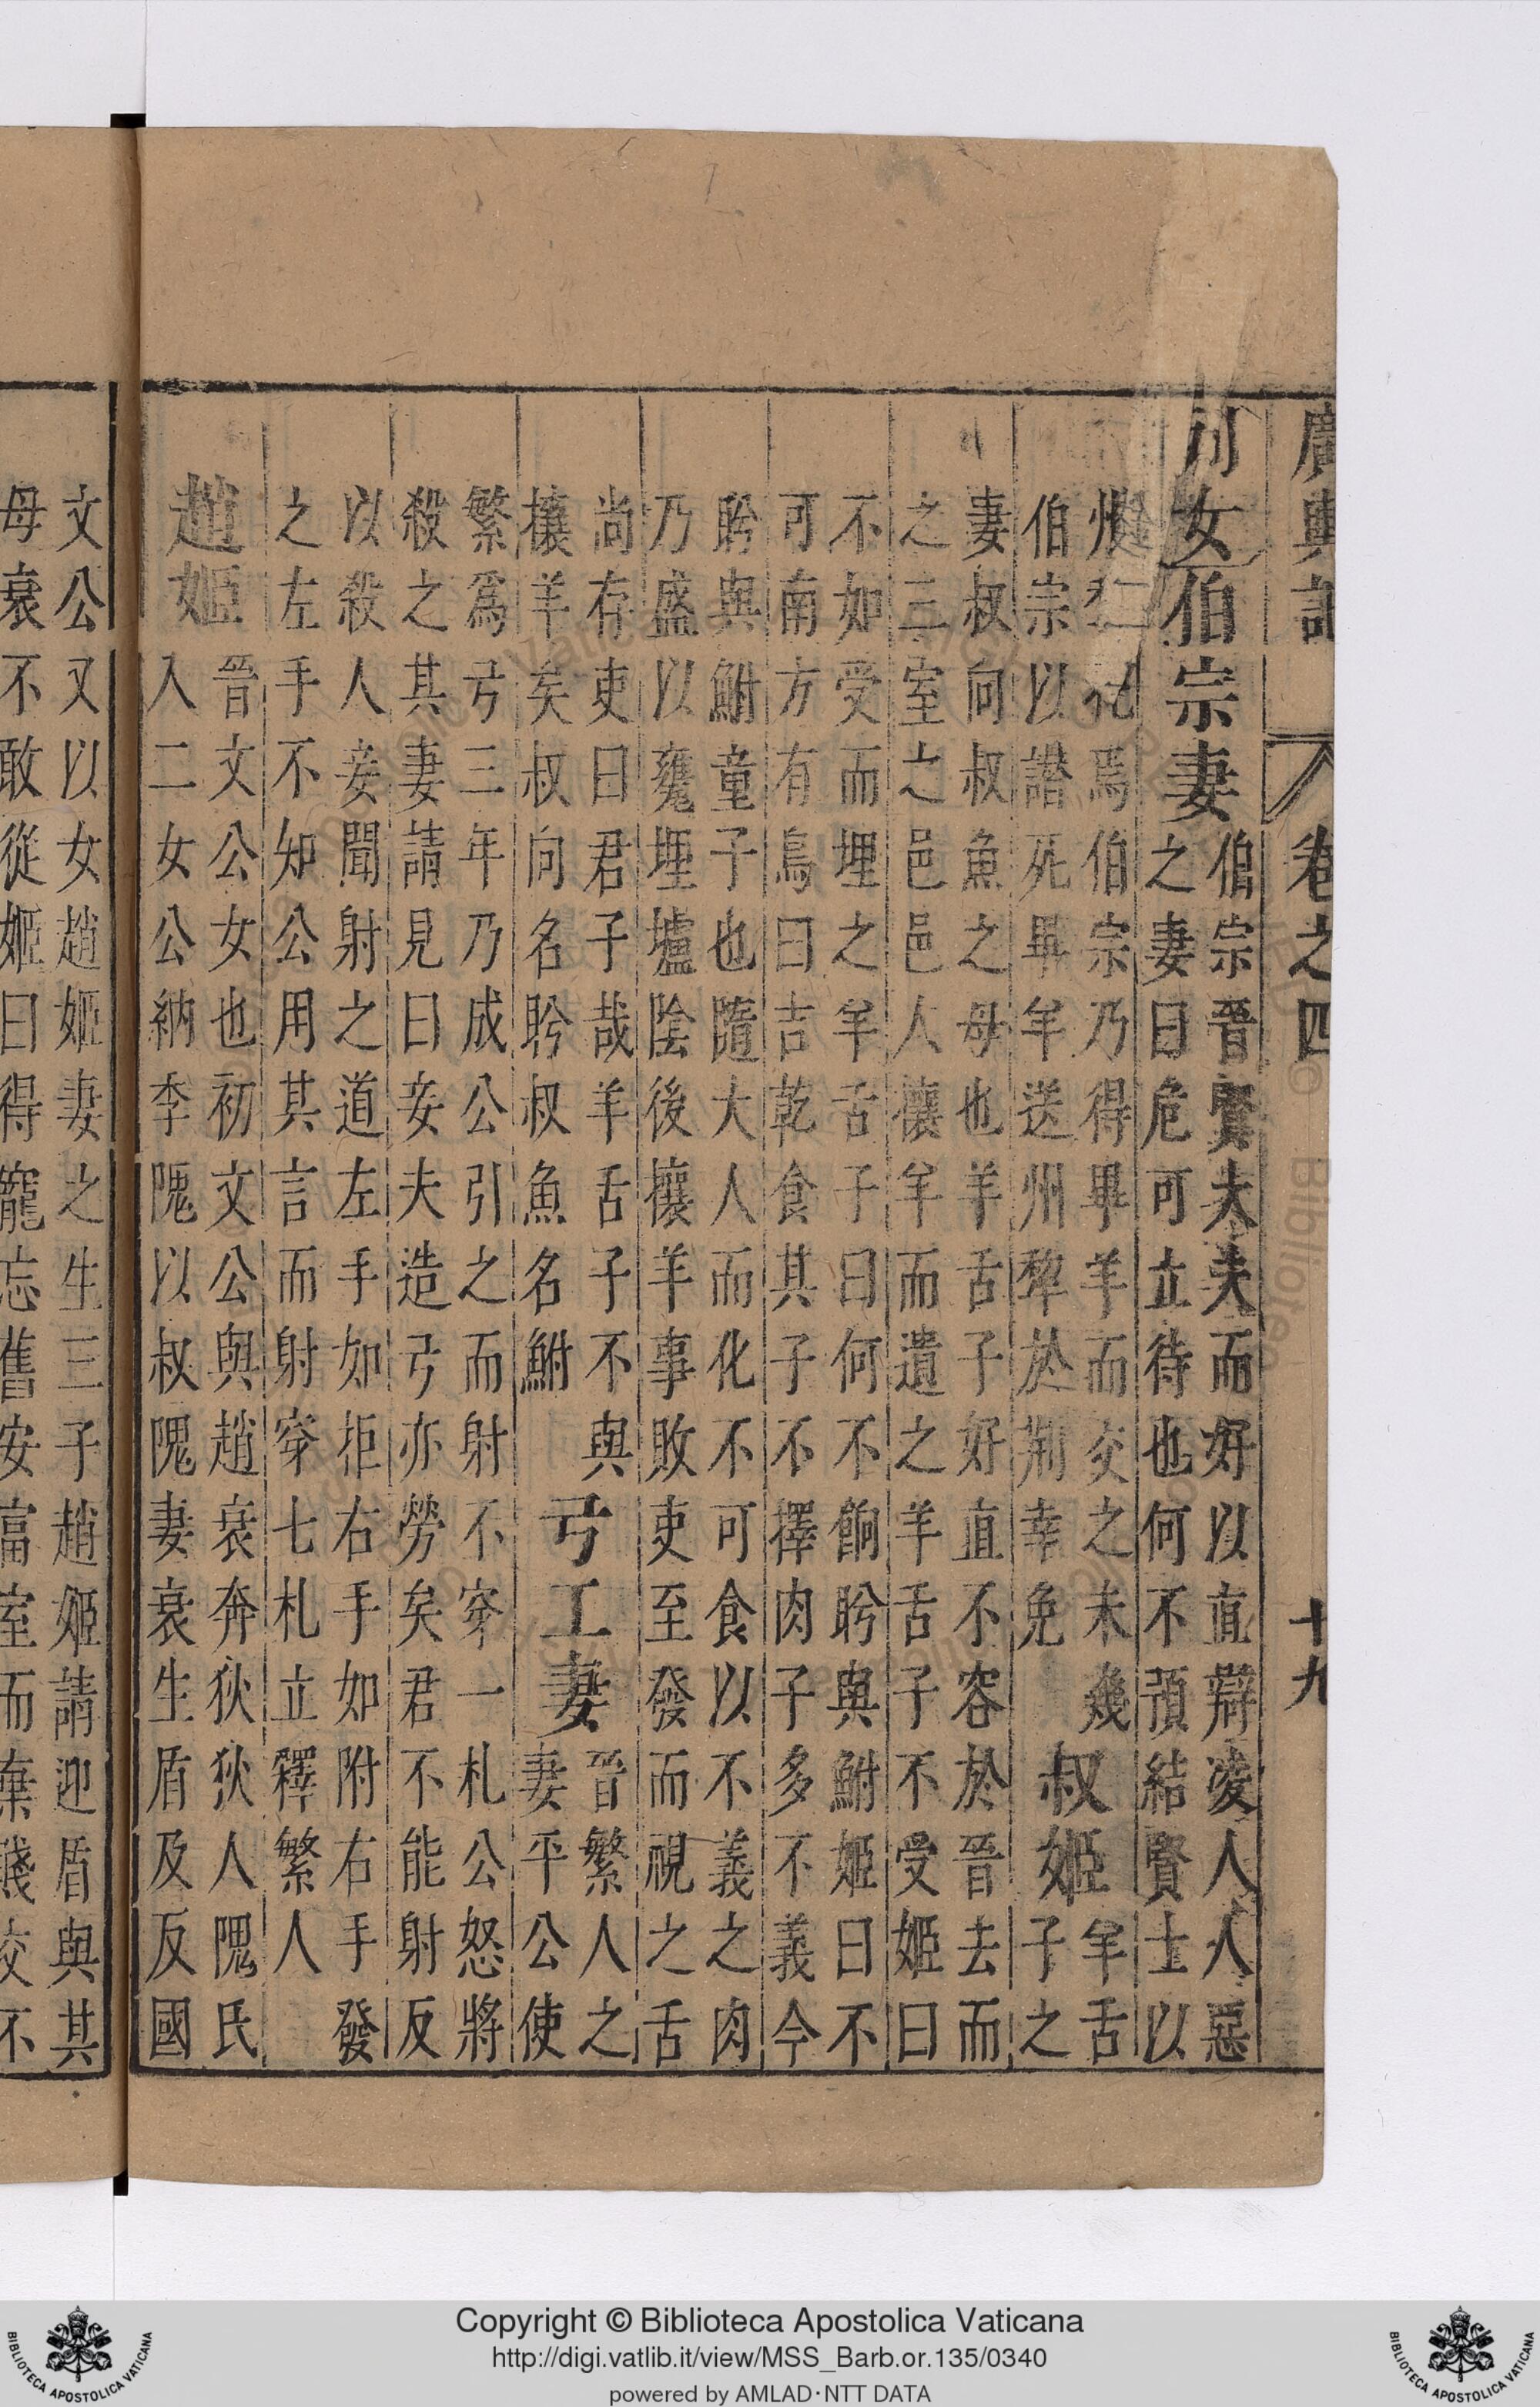 廣輿記 卷之四 十九
列女 伯宗妻 伯宗晉賢大夫而好以直辯凌人人惡
之妻曰危可立待也何不預結賢士以
州犂託焉伯宗乃得畢羊而交之未幾
伯宗以譖死畢羊送州犂於荊幸免 叔姬 羊舌子之
妻叔向叔魚之母也羊舌子好直不容於晉去而
之三室之邑邑人攘羊而遺之羊舌子不受姬曰
不如受而埋之羊舌子曰何不餉肸與鮒姬曰不
可南方有鳥曰吉乾食其子不擇肉子多不義今
肸與鮒童子也隨大人而化不可食以不義之肉
乃盛以甕埋壚陰後攘羊事敗吏至發而視之舌
尚存吏曰君子哉羊舌子不與
攘羊矣叔向名肸叔魚名鮒 弓工妻 晉繁人之妻平公使
繁為弓三年乃成公引之而射不穿一札公怒將
殺之其妻請見曰妾夫造弓亦勞矣君不能射反
以殺人妾聞射之道左手如拒右手如附右手發
之左手不知公用其言而射穿七札立釋繁人
趙姬 晉文公女也初文公與趙衰奔狄狄人隗氏
入二女公納季隗以叔隗妻衰生盾及反國
文公又以女趙姬妻之生三子趙姬請迎盾與其
母衰不敢從姬曰得寵忘舊安富室而棄賤交不
Copyright © Biblioteca Apostolica Vaticana
http://digi.vatlib.it/view/MSS_Barb.or.135/0340
powered by AMLAD·NTT DATA
BIBLIOTECA APOSTOLICA VATICANA
BIBLIOTECA APOSTOLICA VATICANA